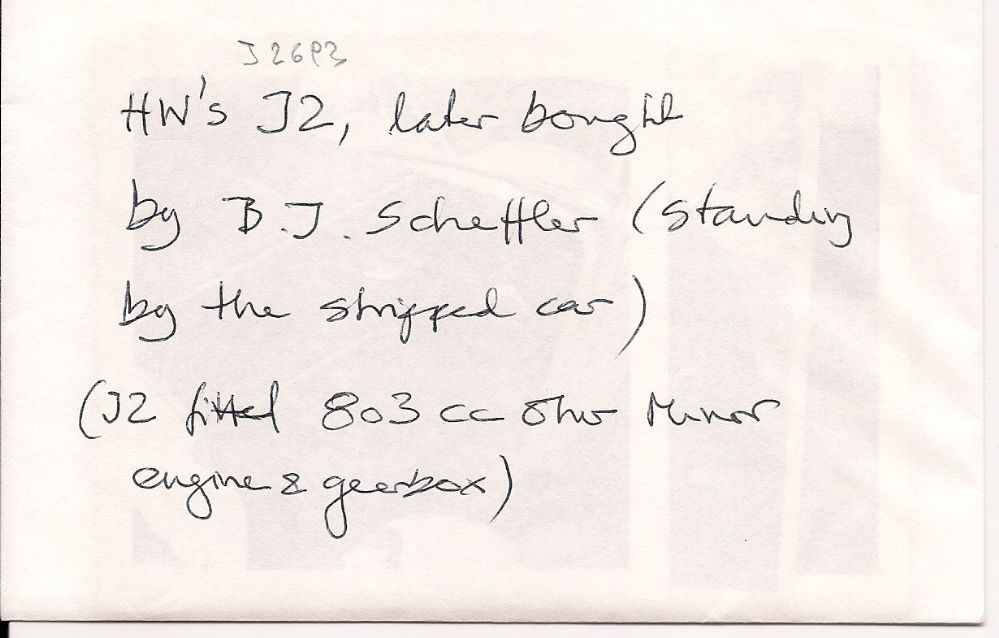 J2693
HW's J2, later bought
by B.J. Scheffler (standing
by the stripped car)
(J2 fitted 803 cc ohv Minor
engine & gearbox)